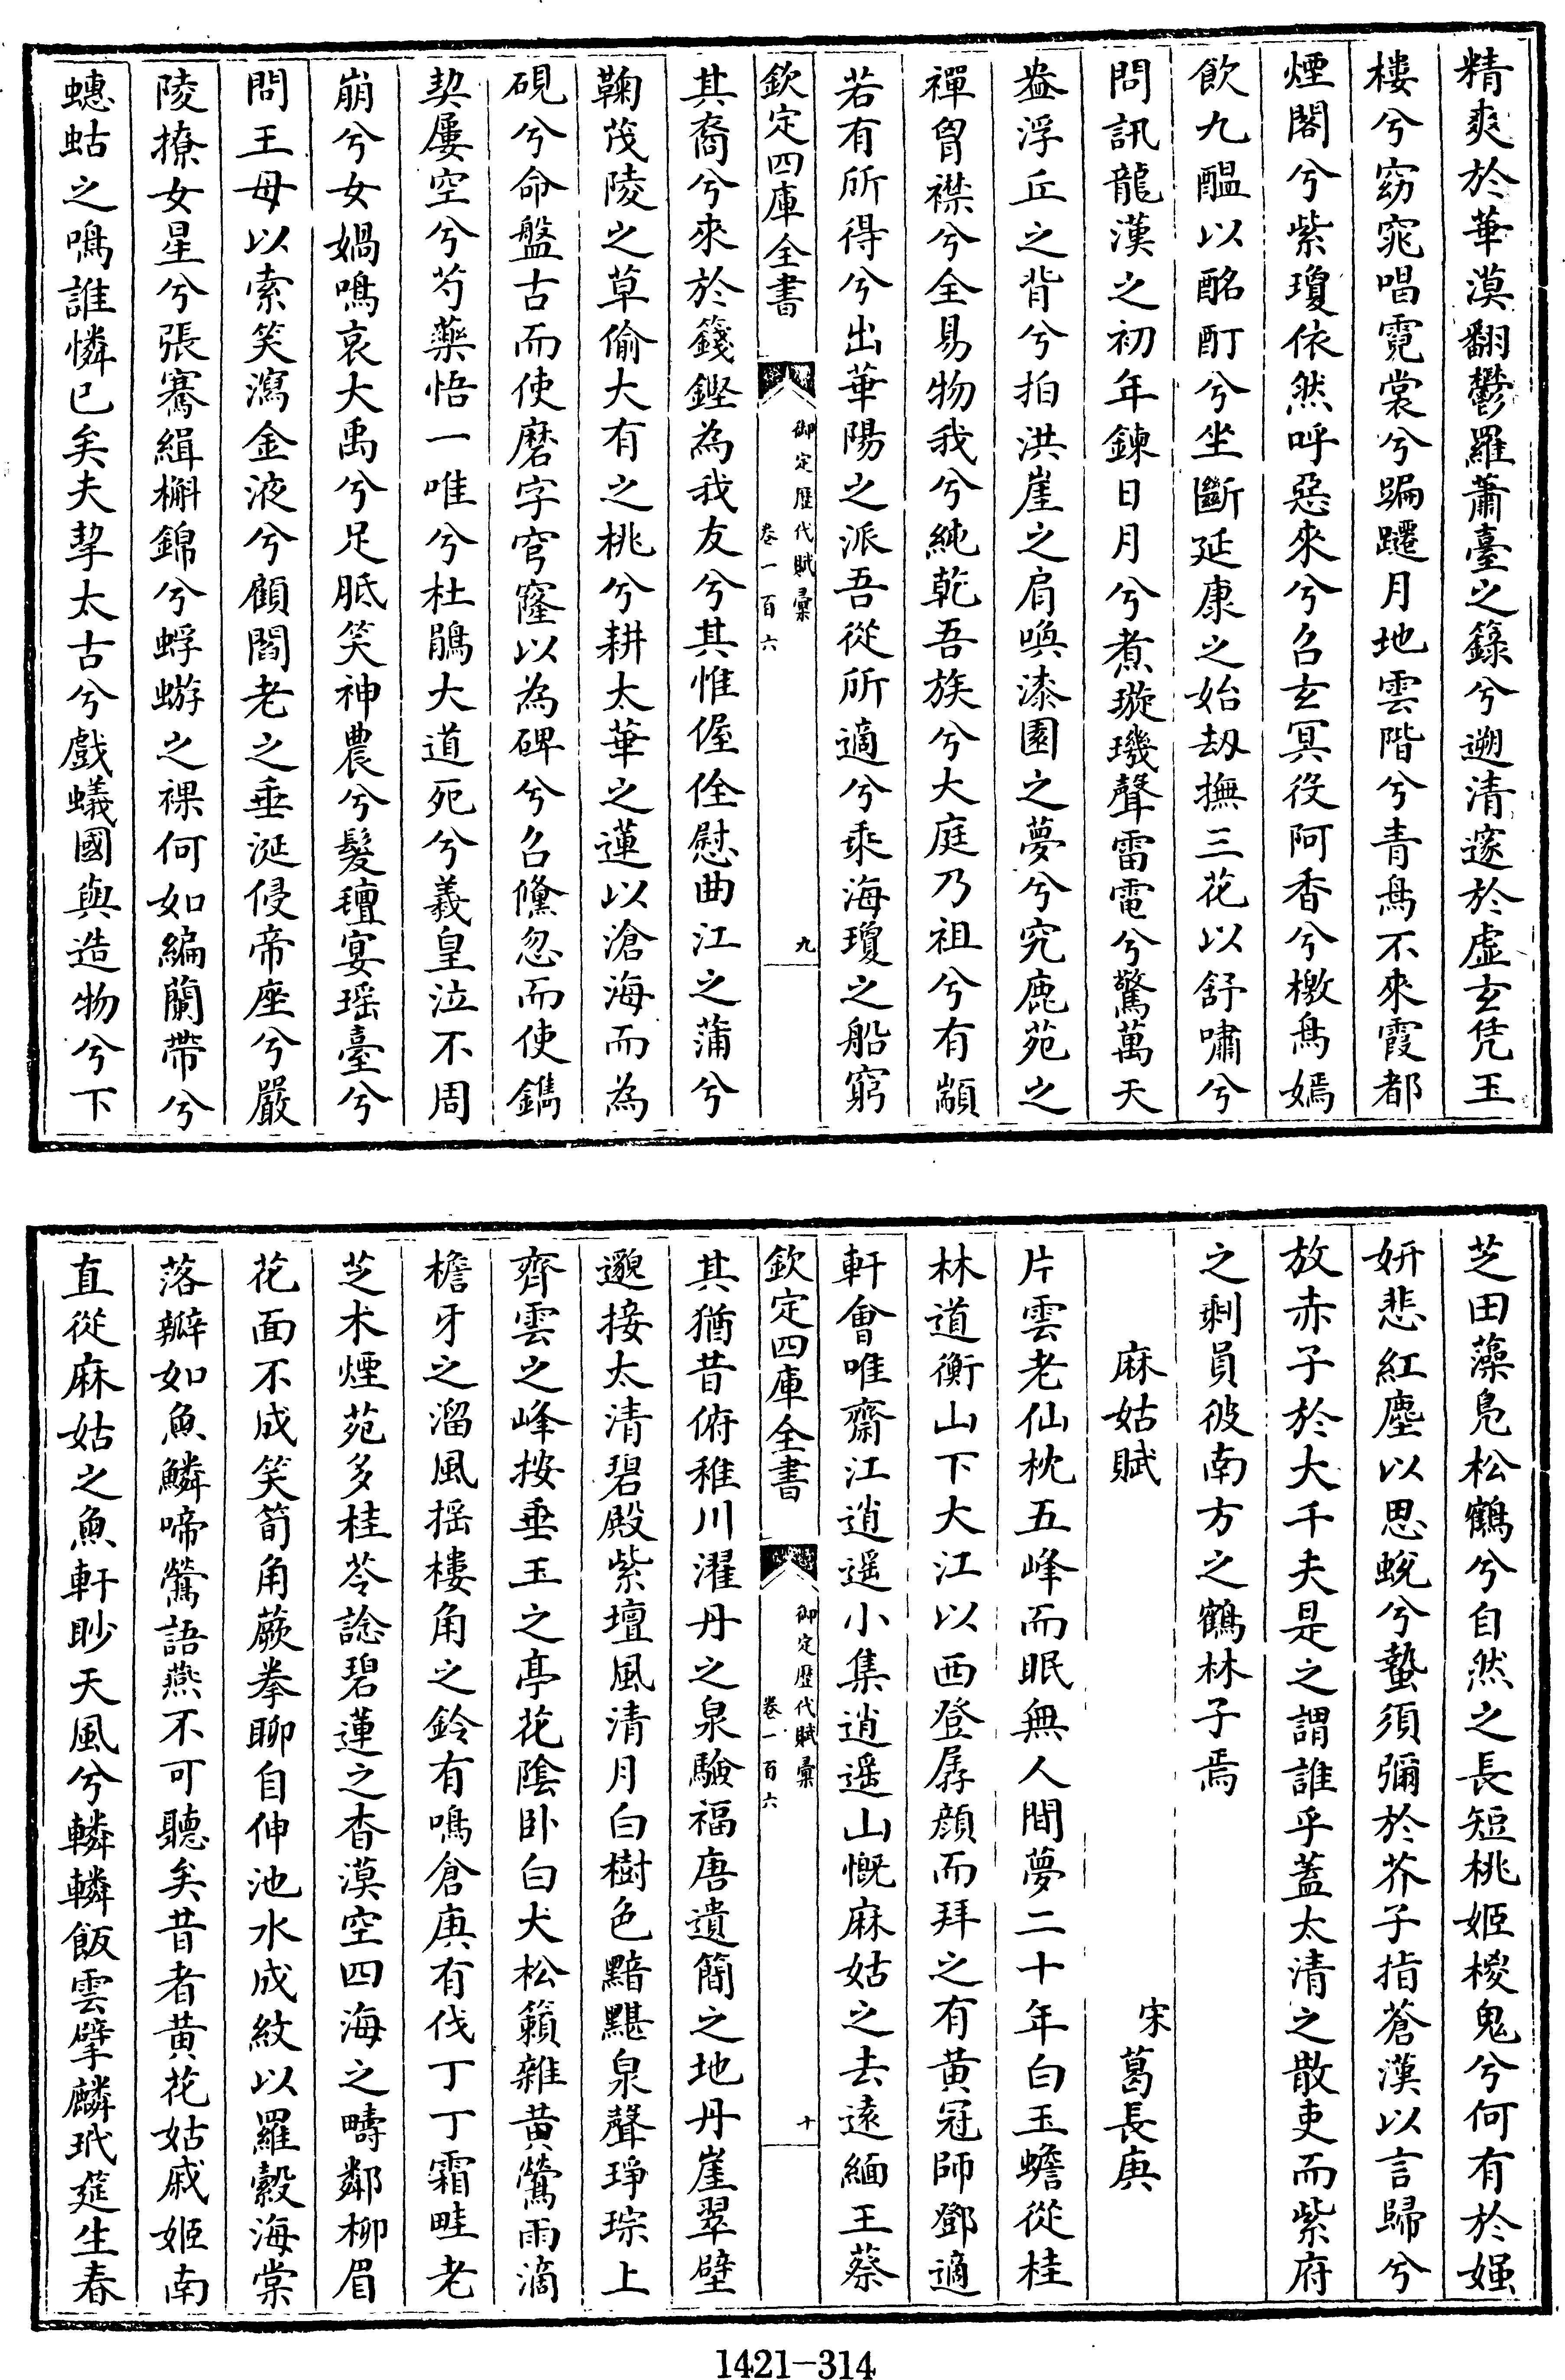 精爽於華漠翻鬱羅蕭臺之籙兮遡清邃於虛玄凭玉
樓兮窈窕唱霓裳兮蹁躚月地雲階兮青鳥不來霞都
煙閣兮紫瓊依然呼惡來兮召玄冥役阿香兮檄鳥嫣
飲九醞以酩酊兮坐斷延康之始劫撫三花以舒嘯兮
問訊龍漢之初年鍊日月兮煮璇璣聲雷電兮驚萬天
盎浮丘之背兮拍洪崖之肩喚漆園之夢兮究鹿苑之
禪胷襟兮全易物我兮純乾吾族兮大庭乃祖兮有顓
若有所得兮出華陽之派吾從所適兮乘海瓊之船窮
欽定四庫全書
御定歷代賦彙
卷一百六
九
其裔兮來於籛鏗為我友兮其惟偓佺慰曲江之蒲兮
鞠茂陵之草偷大有之桃兮耕太華之蓮以滄海而為
硯兮命盤古而使磨字穹窿以為碑兮召儵忽而使鐫
契屢空兮芍藥悟一唯兮杜鵑大道死兮羲皇泣不周
崩兮女媧鳴哀大禹兮足胝笑神農兮髮䄠宴瑶臺兮
問王母以索笑瀉金液兮顧閻老之垂涎侵帝座兮嚴
陵撩女星兮張騫緝槲錦兮蜉蝣之裸何如編蘭帶兮
蟪蛄之鳴誰憐已矣夫挈太古兮戲蟻國與造物兮下
芝田藻鳧松鶴兮自然之長短桃姬椶鬼兮何有於媸
妍悲紅塵以思蛻兮蟄須彌於芥子指蒼漢以言歸兮
放赤子於大千夫是之謂誰乎蓋太清之散吏而紫府
之剩員彼南方之鶴林子焉
麻姑賦
宋葛長庚
片雲老仙枕五峰而眠無人間夢二十年白玉蟾從桂
林道衡山下大江以西登孱顔而拜之有黃冠師鄧適
軒會唯齋江逍遥小集逍遥山慨麻姑之去遠緬王蔡
欽定四庫全書
御定歷代賦彙
卷一百六
十
其猶昔俯稚川濯丹之泉驗福唐遺簡之地丹崖翠壁
邈接太清碧殿紫壇風清月白樹色黯黮泉聲琤琮上
齊雲之峰按垂玉之亭花陰卧白犬松籟雜黃鶯雨滴
檐牙之溜風揺樓角之鈴有鳴倉庚有伐丁丁霜畦老
芝术煙苑多桂苓諗碧蓮之杳漠空四海之疇鄰柳眉
花面不成笑筍角蕨拳聊自伸池水成紋以羅縠海棠
落瓣如魚鱗啼鶯語燕不可聽矣昔者黃花姑戚姬南
直從麻姑之魚軒眇天風兮轔轔飯雲擘麟玳筵生春
1421—314